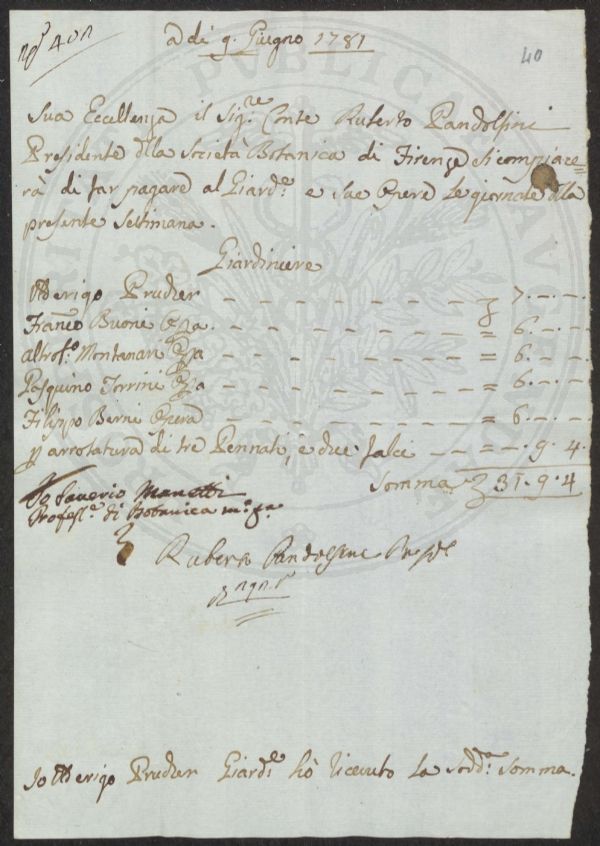 a di 9. Giugno 1781
40
Sua Eccellenza il Sig.re Conte Ruberto Pandolfini
Presidente dlla Società Botanica di Firenze si compiace=
rà di far pagare al Giard.e e sue Opere le giornate dlla
presente Settimana.
Giardiniere
Alderigo Prucker — — — — — — — — 7. — . —
Fran.co Buoni Opa. — — — — — — — — = 6. — . —
altro f.o Montanari Opa — — — — — — — = 6. — . —
Pasquino Torrini Opa — — — — — — — = 6. — . —
Filippo Berni Opera — — — — — — — = 6. — . —
p arrotatura di tre Pennati, e due falci — — = — . 9. 4.
Somma 31. 9. 4
Io Saverio Manetti
Profess.e di Botanica m.o p.a
Ruberto Pandolfini Presde
Io Alderigo Prucker Giard.e hò ricevuto la Sodd.a Somma.